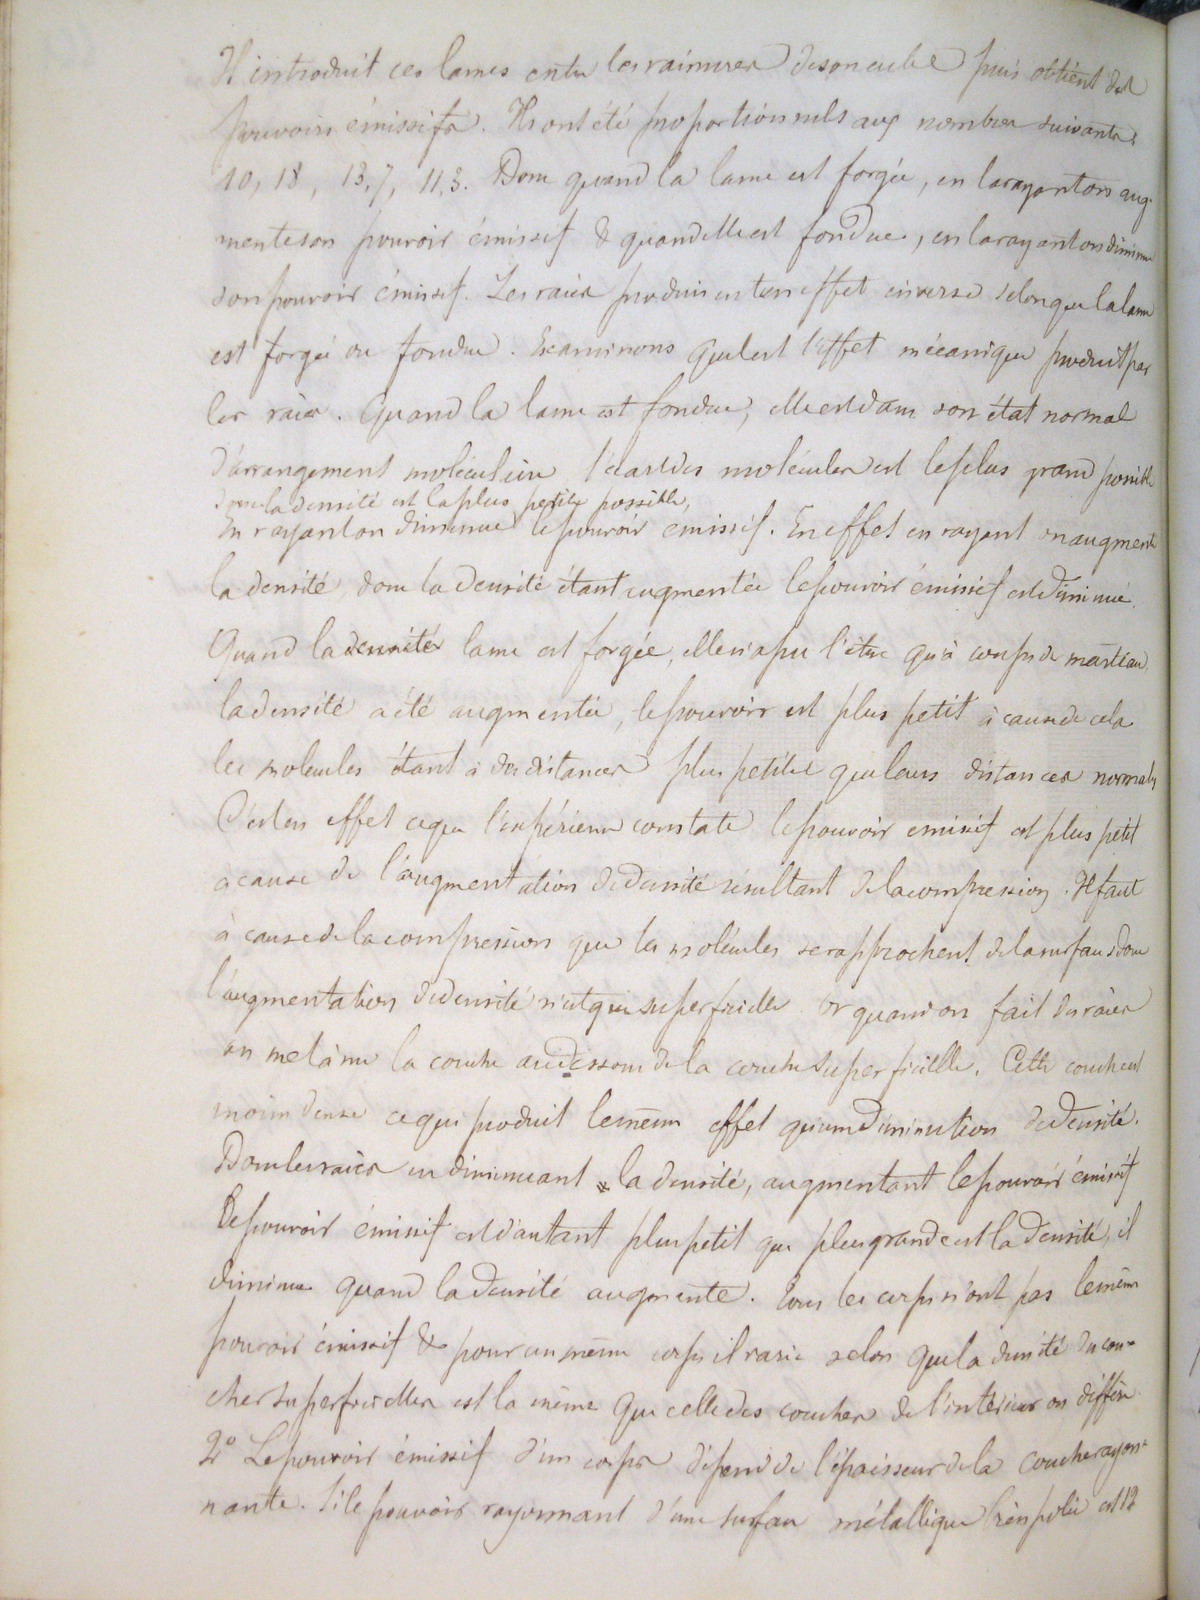 Il introduit ces lames entre les rainures de son cube puis obtient des
pouvoirs émissifs. Ils ont été proportionnels aux nombres suivants:
10, 18, 13,7, 11,3. Donc quand la lame est forgée, en la rayant on aug-
mente son pouvoir émissif & quand elle est fondue, en la rayant on diminue
son pouvoir émissif. Les raies produisent un effet inverse selon que la lame
est forgée ou fondue. Examinons quel est l'effet mécanique produit par
les raies. Quand la lame est fondue, elle est dans son état normal
d'arrangement moléculaire l'écart des molécules est le plus grand possible
donc la densité est la plus petite possible,
En rayant on diminue le pouvoir émissif. En effet en rayant on augmente
la densité, donc la densité étant augmentée le pouvoir émissif est diminué.
Quand la lame est forgée, elle n'a pu l'être qu'à coups de marteau.
la densité a été augmentée, le pouvoir est plus petit à cause de cela
les molécules étant à des distances plus petites que leurs distances normales
C'est en effet ce que l'expérience constate le pouvoir émissif est plus petit
à cause de l'augmentation de densité résultant de la compression. Il faut
à cause de la compression que les molécules se rapprochent de la surface donc
l'augmentation de densité n'est que superficielle. Or quand on fait des raies
on met à nu la couche au dessous de la couche superficielle. Cette couche est
moins dense ce qui produit le même effet qu'une diminution de densité.
Donc les raies en diminuant la densité, augmentant le pouvoir émissif
Le pouvoir émissif est d'autant plus petit que plus grande est la densité, il
diminue quand la densité augmente. Tous les corps n'ont pas le même
pouvoir émissif & pour un même corps il varie selon que la densité des cou-
ches superficielles est la même que celle des couches de l'intérieur ou diffère.
2° Le pouvoir émissif d'un corps dépend de l'épaisseur de la couche rayon-
nante. Si le pouvoir rayonnant d'une surface métallique bien polie est 12